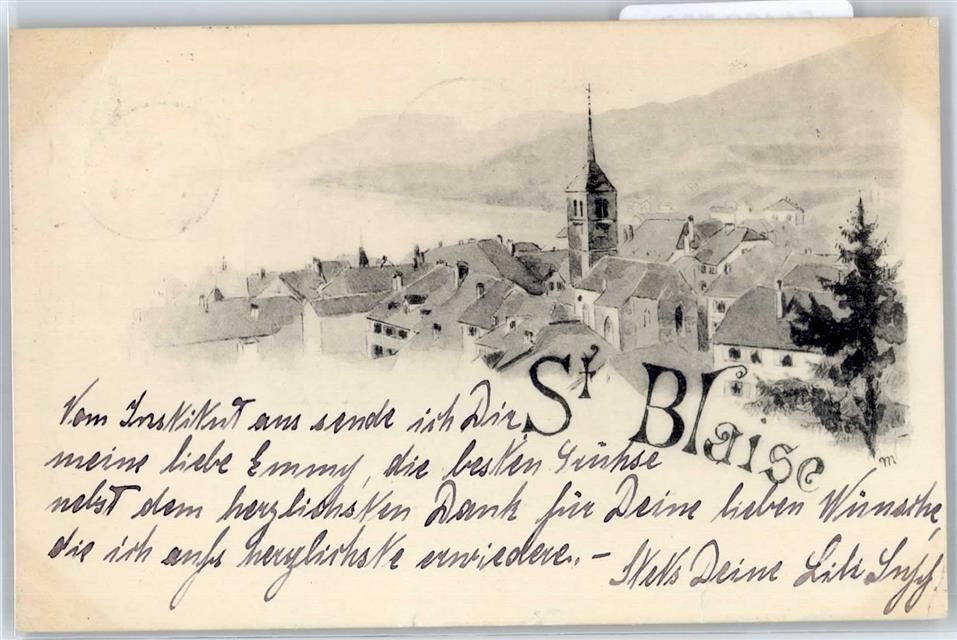 St Blaise
m
Vom Institut aus sende ich Dir,
meine liebe Emmy, die besten Grühse
nebst dem herzlichsten Dank für Deine lieben Wünsche,
die ich aufs herzlichste erwiedere. –
Stets Deine Lili